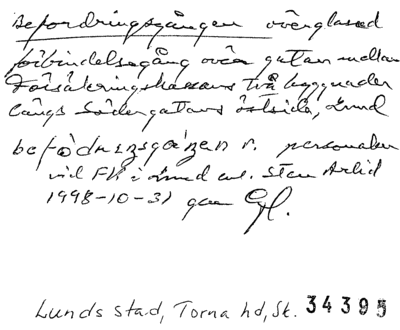 Befordringsgången överglasad
förbindelsegång över gatan mellan
Försäkringskassans två byggnader
längs Södergatans östsida, Lund
befodringsgången n. personalen
vid FK i Lund enl. Sten Arlid
1998-10-31 gm
Lunds stad, Torna hd, Sk. 34395